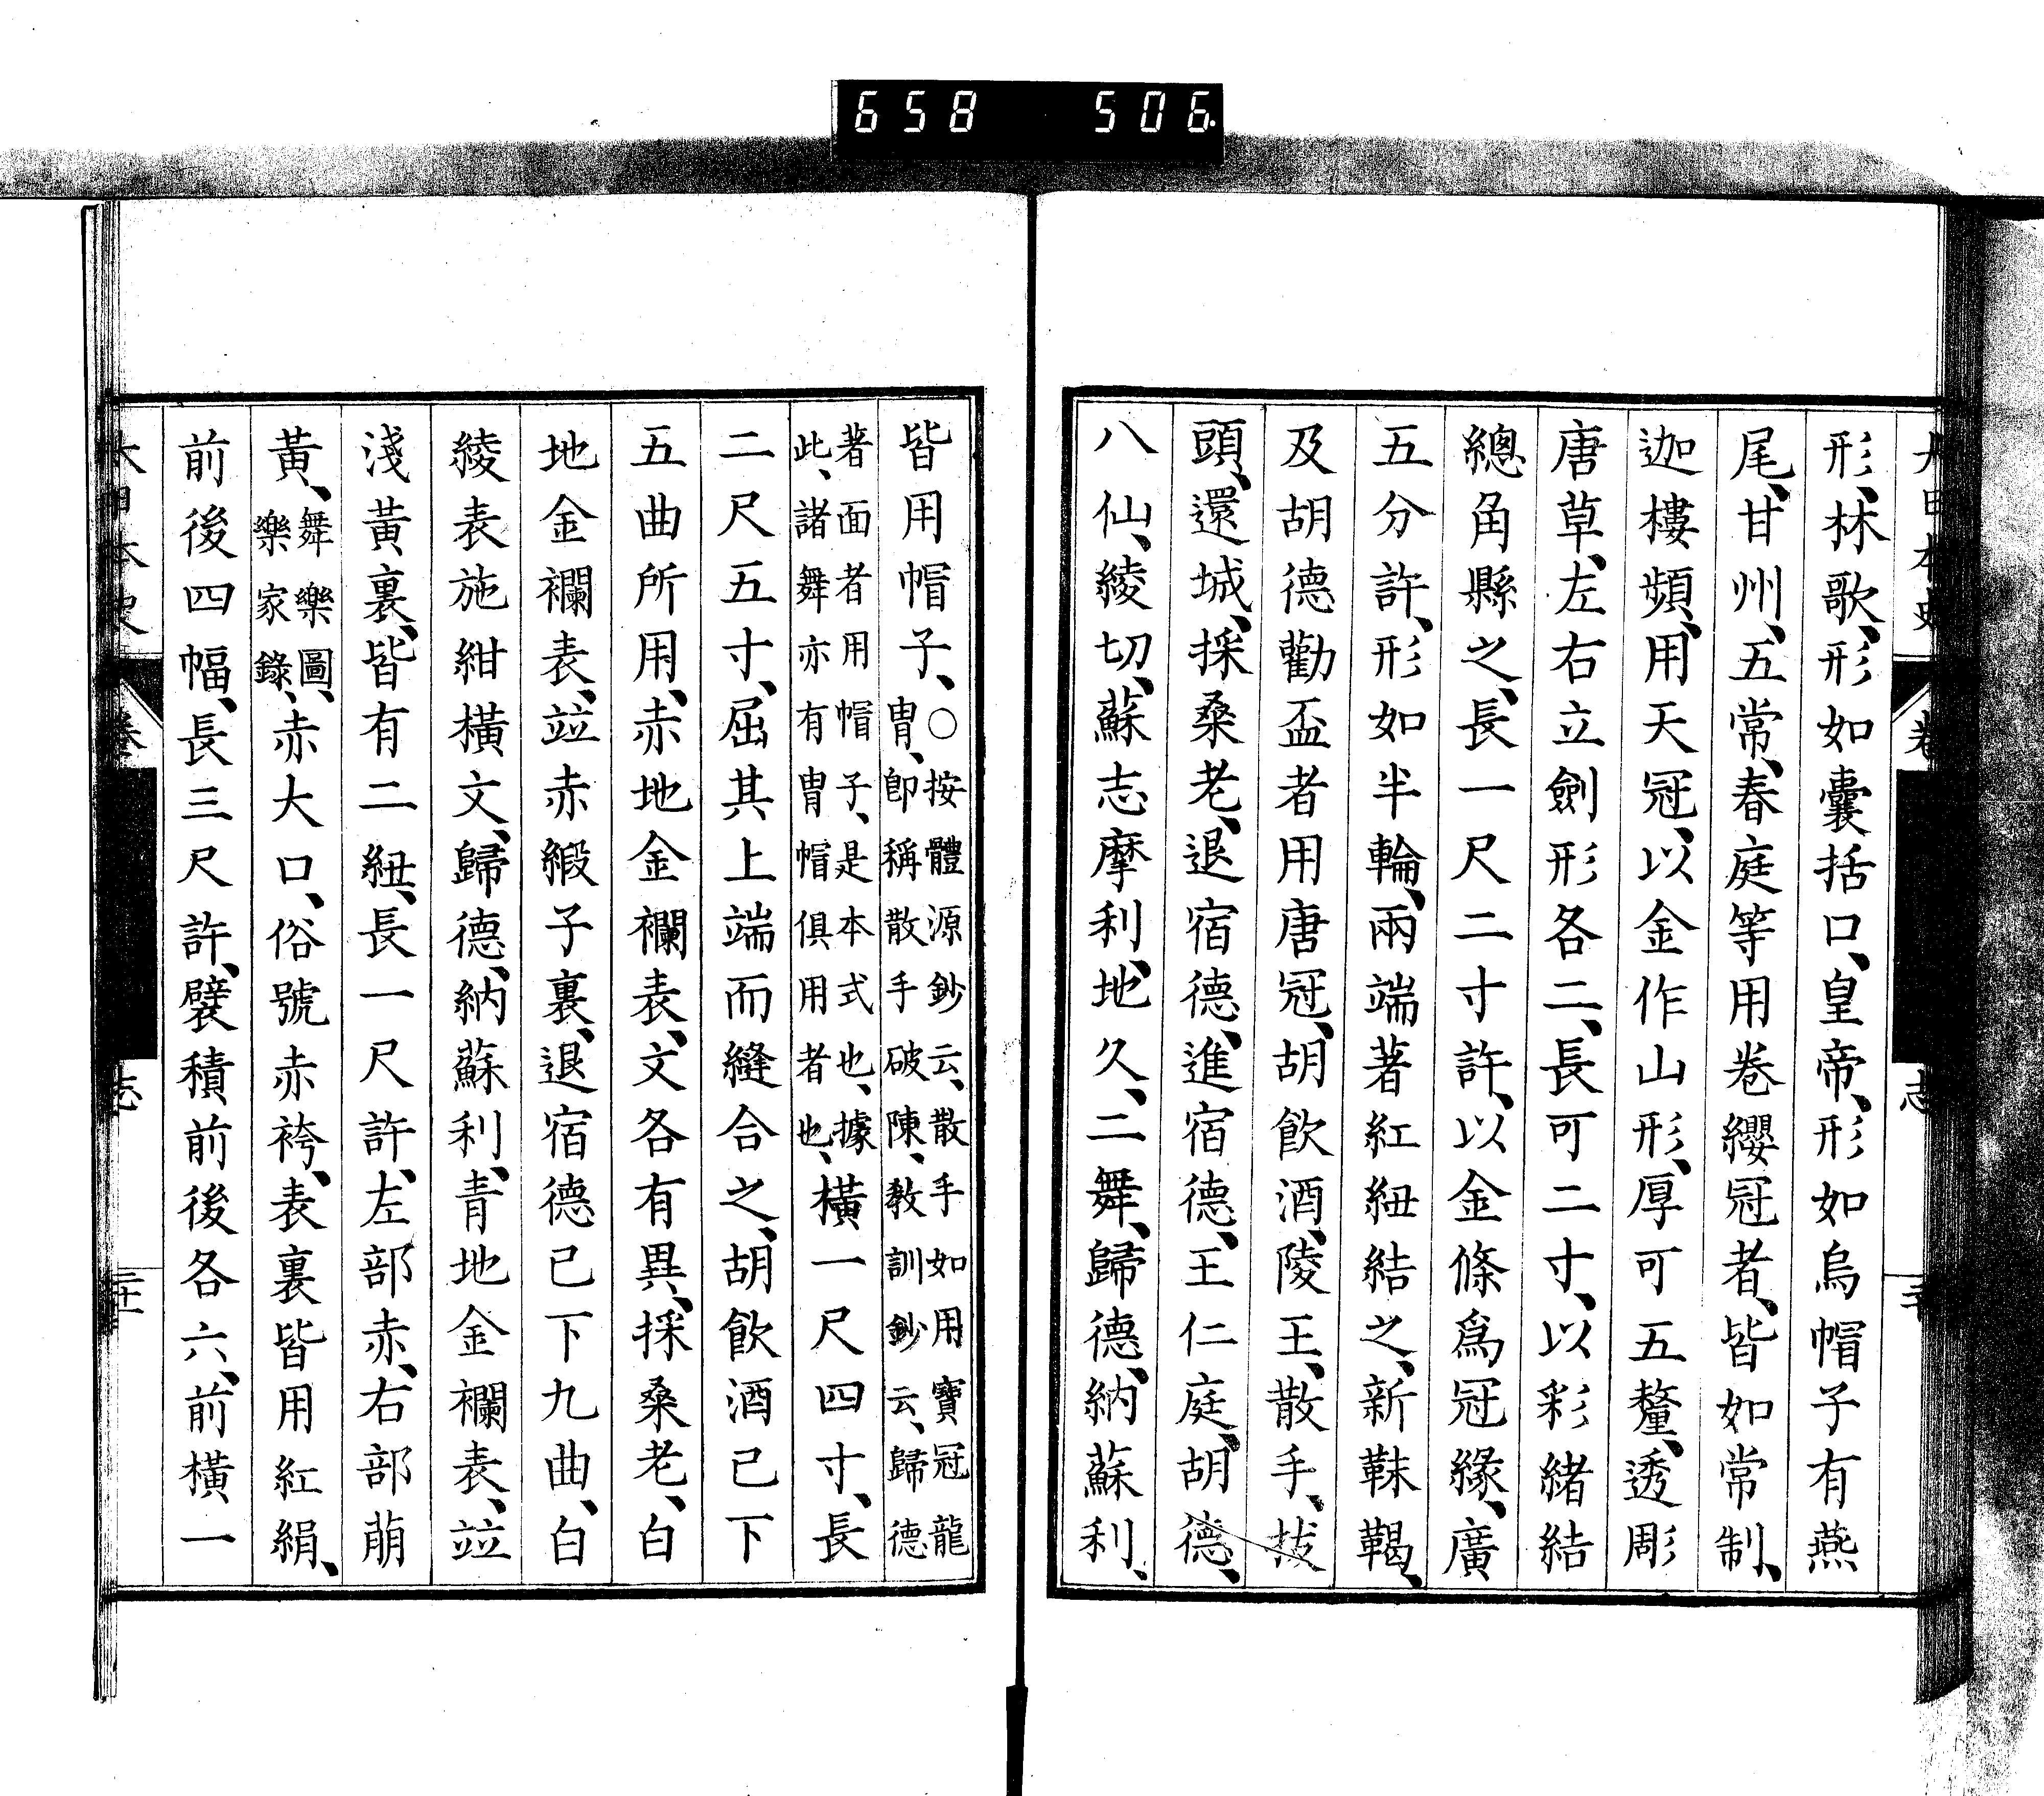 658 506
形、林歌、形如囊括口、皇帝、形如烏帽子有燕
尾、甘州、五常、春庭等用卷纓冠者、皆如常制、
迦樓頻、用天冠、以金作山形、厚可五釐、透彫
唐草、左右立劍形各二、長可二寸、以彩緒結
總角縣之、長一尺二寸許、以金條爲冠緣、廣
五分許、形如半輪、兩端著紅紐結之、新靺鞨、
及胡德勸盃者用唐冠、胡飮酒、陵王、散手、拔
頭、還城、採桑老、退宿德、進宿德、王仁庭、胡德、
八仙、綾切、蘇志摩利、地久、二舞、歸德、納蘇利、
皆用帽子、
○按體源鈔云、散手如用寶冠龍
冑、卽稱散手破陳、敎訓鈔云、歸德
著面者用帽子、是本式也、據
此、諸舞亦有冑帽俱用者也、
橫一尺四寸、長
二尺五寸、屈其上端而縫合之、胡飮酒已下
五曲所用、赤地金襴表、文各有異、採桑老、白
地金襴表、竝赤緞子裏、退宿德已下九曲、白
綾表施紺橫文、歸德、納蘇利、青地金襴表、竝
淺黃裏、皆有二紐、長一尺許、左部赤、右部萠
黃、
舞樂圖、
樂家錄、
赤大口、俗號赤袴、表裏皆用紅絹、
前後四幅、長三尺許、襞積前後各六、前橫一